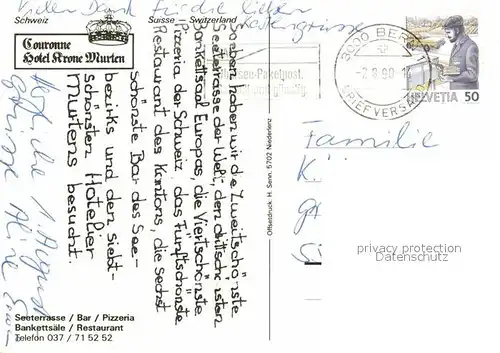 Vielen Dank für die lieben
Kartengrüsse
Schweiz
Suisse
Switzerland
Couronne
Hotel Krone Murten
Soeben haben wir die Zweitschönste
Seeterrasse der Welt, den drittschönsten
Bankettsaal Europas, die Viertschönste
Pizzeria der Schweiz, das Fünftschönste
Restaurant des Kantons, die sechst
schönste Bar des See-
bezirks und den siebt-
schönsten Hotelier
Murtens besucht.
Herzliche 1. August
grüsse Aline
3000 BERN
-2.8.90
BRIEFVERSAND
HELVETIA 50
Familie
Offsetdruck: H. Senn, 5702 Niederlenz
privacy protection
Datenschutz
Seeterrasse / Bar / Pizzeria
Bankettsäle / Restaurant
Telefon 037 / 71 52 52